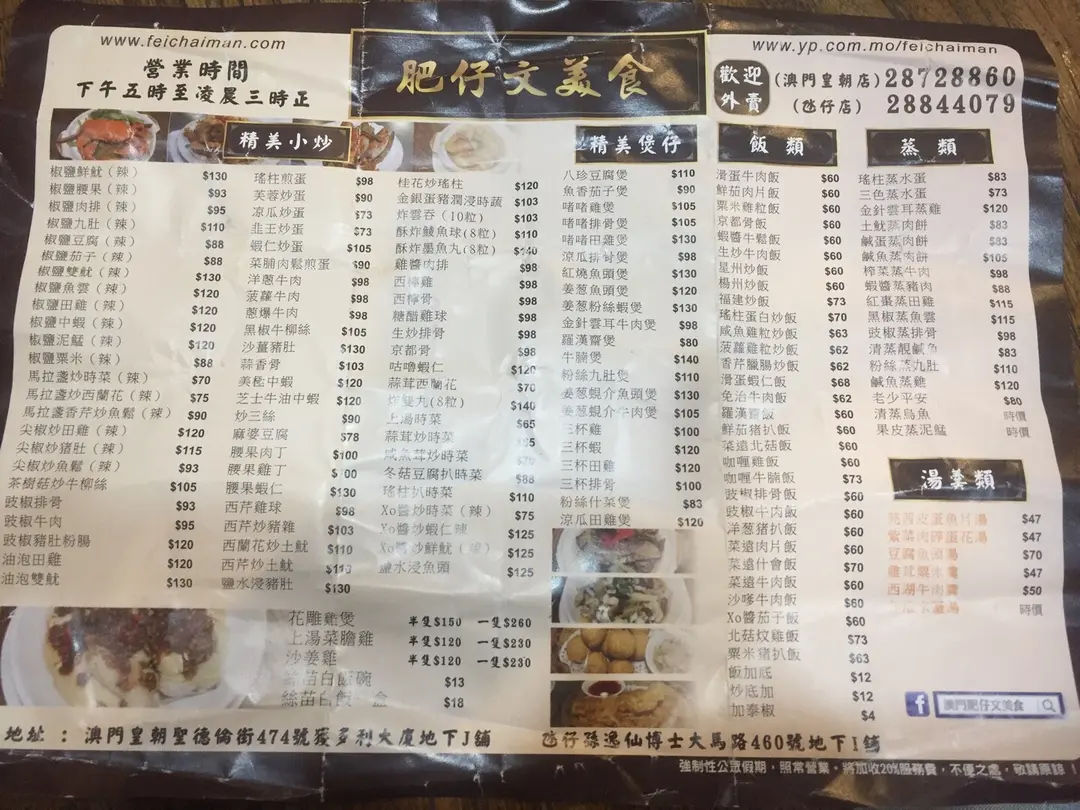 www.feichaiman.com
營業時間
下午五時至凌晨三時正
肥仔文美食
www.yp.com.mo/feichaiman
歡迎外賣
(澳門皇朝店) 28728860
(氹仔店) 28844079
精美小炒
椒鹽鮮魷（辣） $130
椒鹽腰果（辣） $93
椒鹽肉排（辣） $95
椒鹽九肚（辣） $110
椒鹽豆腐（辣） $88
椒鹽茄子（辣） $88
椒鹽雙魷（辣） $130
椒鹽魚雲（辣） $120
椒鹽田雞（辣） $120
椒鹽中蝦（辣） $120
椒鹽泥鯭（辣） $120
椒鹽粟米（辣） $88
馬拉盞炒時菜（辣） $70
馬拉盞炒西蘭花（辣） $75
馬拉盞香芹炒魚鬆（辣） $90
尖椒炒田雞（辣） $120
尖椒炒豬肚（辣） $115
尖椒炒魚鬆（辣） $93
茶樹菇炒牛柳絲 $105
豉椒排骨 $93
豉椒牛肉 $95
豉椒豬肚粉腸 $120
油泡田雞 $120
油泡雙魷 $130
瑤柱煎蛋 $98
芙蓉炒蛋 $90
凉瓜炒蛋 $73
韭王炒蛋 $73
蝦仁炒蛋 $105
菜脯肉鬆煎蛋 $90
洋蔥牛肉 $98
菠蘿牛肉 $98
蔥爆牛肉 $98
黑椒牛柳絲 $105
沙薑豬肚 $130
蒜香骨 $103
美極中蝦 $120
芝士牛油中蝦 $120
炒三絲 $90
麻婆豆腐 $78
腰果肉丁 $100
腰果雞丁 $100
腰果蝦仁 $130
西芹雞球 $98
西芹炒豬雜 $103
西蘭花炒土魷 $110
西芹炒土魷 $113
鹽水浸豬肚 $130
桂花炒瑤柱 $120
金銀蛋豬潤浸時蔬 $103
炸雲吞（10粒） $103
酥炸鯪魚球(8粒) $110
酥炸墨魚丸(8粒) $140
雞醬肉排 $98
西檸雞 $98
西檸骨 $98
糖醋雞球 $98
生炒排骨 $98
京都骨 $98
咕嚕蝦仁 $120
蒜茸西蘭花 $70
炸雙丸(8粒) $140
上湯時菜 $65
蒜茸炒時菜
咸魚茸炒時菜 $70
冬菇豆腐扒時菜 $88
瑤柱扒時菜 $110
Xo醬炒時菜（辣） $75
Xo醬炒蝦仁辣 $125
Xo醬炒鮮魷（辣） $125
鹽水浸魚頭 $125
精美煲仔
八珍豆腐煲 $110
魚香茄子煲 $90
啫啫雞煲 $105
啫啫排骨煲 $105
啫啫田雞煲 $130
凉瓜排骨煲 $98
紅燒魚頭煲 $130
姜葱魚頭煲 $120
姜葱粉絲蝦煲 $130
金針雲耳牛肉煲 $98
羅漢齋煲 $80
牛腩煲 $140
粉絲九肚煲 $110
姜葱蜆介魚頭煲 $130
姜葱蜆介牛肉煲 $105
三杯雞 $100
三杯蝦 $120
三杯田雞 $120
三杯排骨 $100
粉絲什菜煲 $83
凉瓜田雞煲 $120
飯類
滑蛋牛肉飯 $60
鮮茄肉片飯 $60
粟米雞粒飯 $60
京都骨飯 $60
蝦醬牛鬆飯 $60
生炒牛肉飯 $60
星州炒飯 $60
楊州炒飯 $60
福建炒飯 $73
瑤柱蛋白炒飯 $70
咸魚雞粒炒飯 $63
菠蘿雞粒炒飯 $62
香芹臘腸炒飯 $62
滑蛋蝦仁飯 $68
免治牛肉飯 $62
羅漢齋飯 $60
鮮茄豬扒飯 $60
菜遠北菇飯 $60
咖喱雞飯 $60
咖喱牛腩飯 $73
豉椒排骨飯 $60
豉椒牛肉飯 $60
洋葱豬扒飯 $60
菜遠肉片飯 $60
菜遠什會飯 $70
菜遠牛肉飯 $60
沙嗲牛肉飯 $60
Xo醬茄子飯 $60
北菇炆雞飯 $73
粟米豬扒飯 $63
飯加底 $12
炒底加 $12
加泰椒 $4
蒸類
瑤柱蒸水蛋 $83
三色蒸水蛋 $73
金針雲耳蒸雞 $120
土魷蒸肉餅 $83
鹹蛋蒸肉餅 $83
鹹魚蒸肉餅 $105
榨菜蒸牛肉 $98
蝦醬蒸豬肉 $88
紅棗蒸田雞 $115
黑椒蒸魚雲 $115
豉椒蒸排骨 $98
清蒸靚鹹魚 $83
粉絲蒸九肚 $110
鹹魚蒸雞 $120
老少平安 $80
清蒸烏魚 時價
果皮蒸泥鯭 時價
湯羹類
芫茜皮蛋魚片湯 $47
紫菜肉碎蛋花湯 $47
豆腐魚頭湯 $70
雞茸粟米羹 $47
西湖牛肉羹 $50
時價
花雕雞煲 半隻$150 一隻$260
上湯菜膽雞 半隻$120 一隻$230
沙姜雞 半隻$120 一隻$230
絲苗白飯碗 $13
絲苗白飯 盒 $18
澳門肥仔文美食
地址 : 澳門皇朝聖德倫街474號獲多利大廈地下J舖
氹仔孫逸仙博士大馬路460號地下I舖
強制性公眾假期，照常營業。將加收20%服務費，不便之處，敬請原諒！